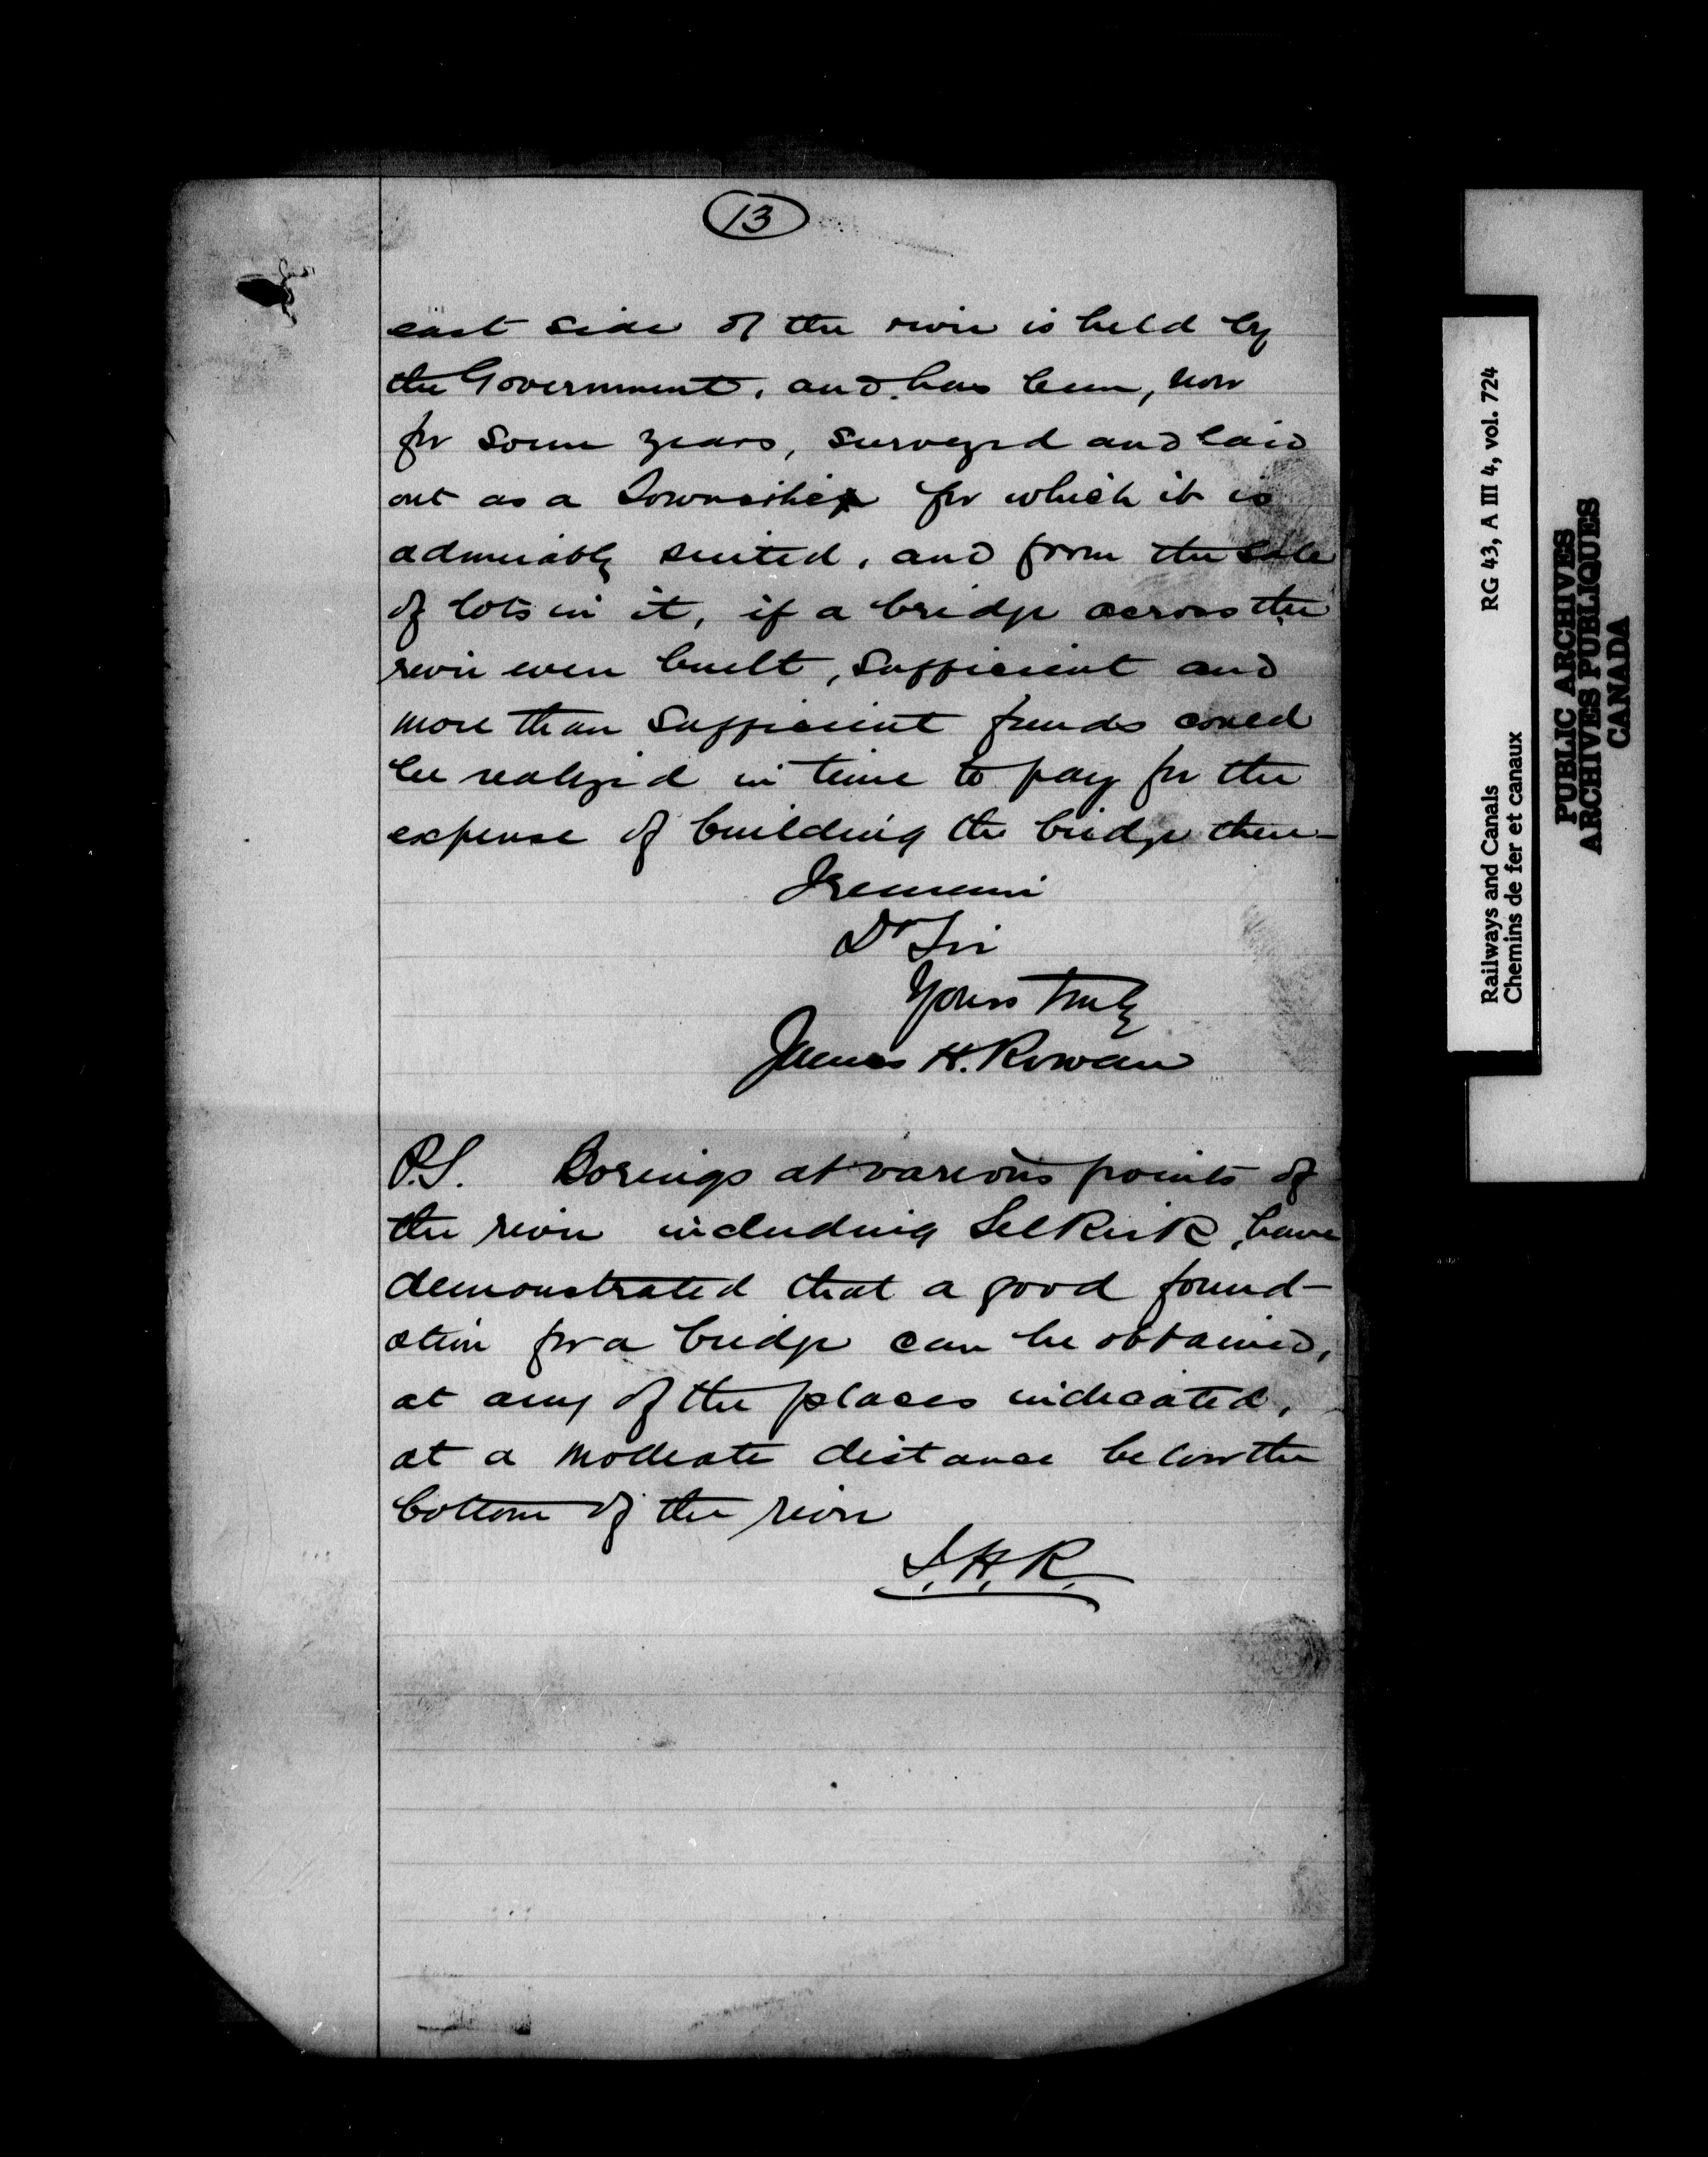 13
east side of the river is held by
the Government, and has been, now
for some years, surveyed and laid
out as a Township for which it is
admirably suited, and from the sale
of lots in it, if a bridge across the
river were built, sufficient and
more than sufficient funds could
be realized in time to pay for the
expense of building the bridge there—
I remain
Dr Sir
Yours Truly
James H. Rowan
P.S. Borings at various points of
the river including Selkirk, have
demonstrated that a good found-
ation for a bridge can be obtained,
at any of the places indicated,
at a moderate distance below the
bottom of the river
J.H.R.
Railways and Canals RG 43, A III 4, vol. 724
Chemins de fer et canaux
PUBLIC ARCHIVES
ARCHIVES PUBLIQUES
CANADA